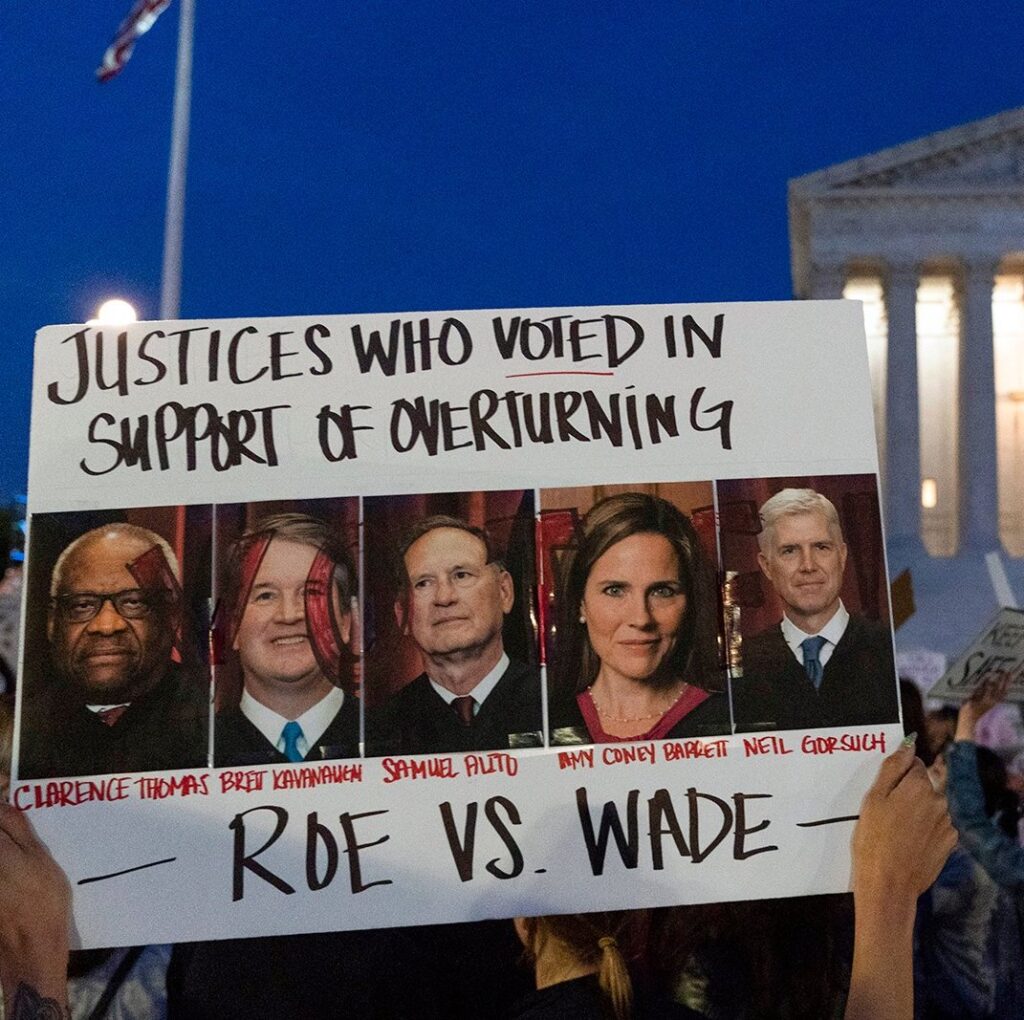 JUSTICES WHO VOTED IN
SUPPORT OF OVERTURNING
CLARENCE THOMAS BRETT KAVANAUGH SAMUEL ALITO AMY CONEY BARRETT NEIL GORSUCH
— ROE VS. WADE —
SAFE